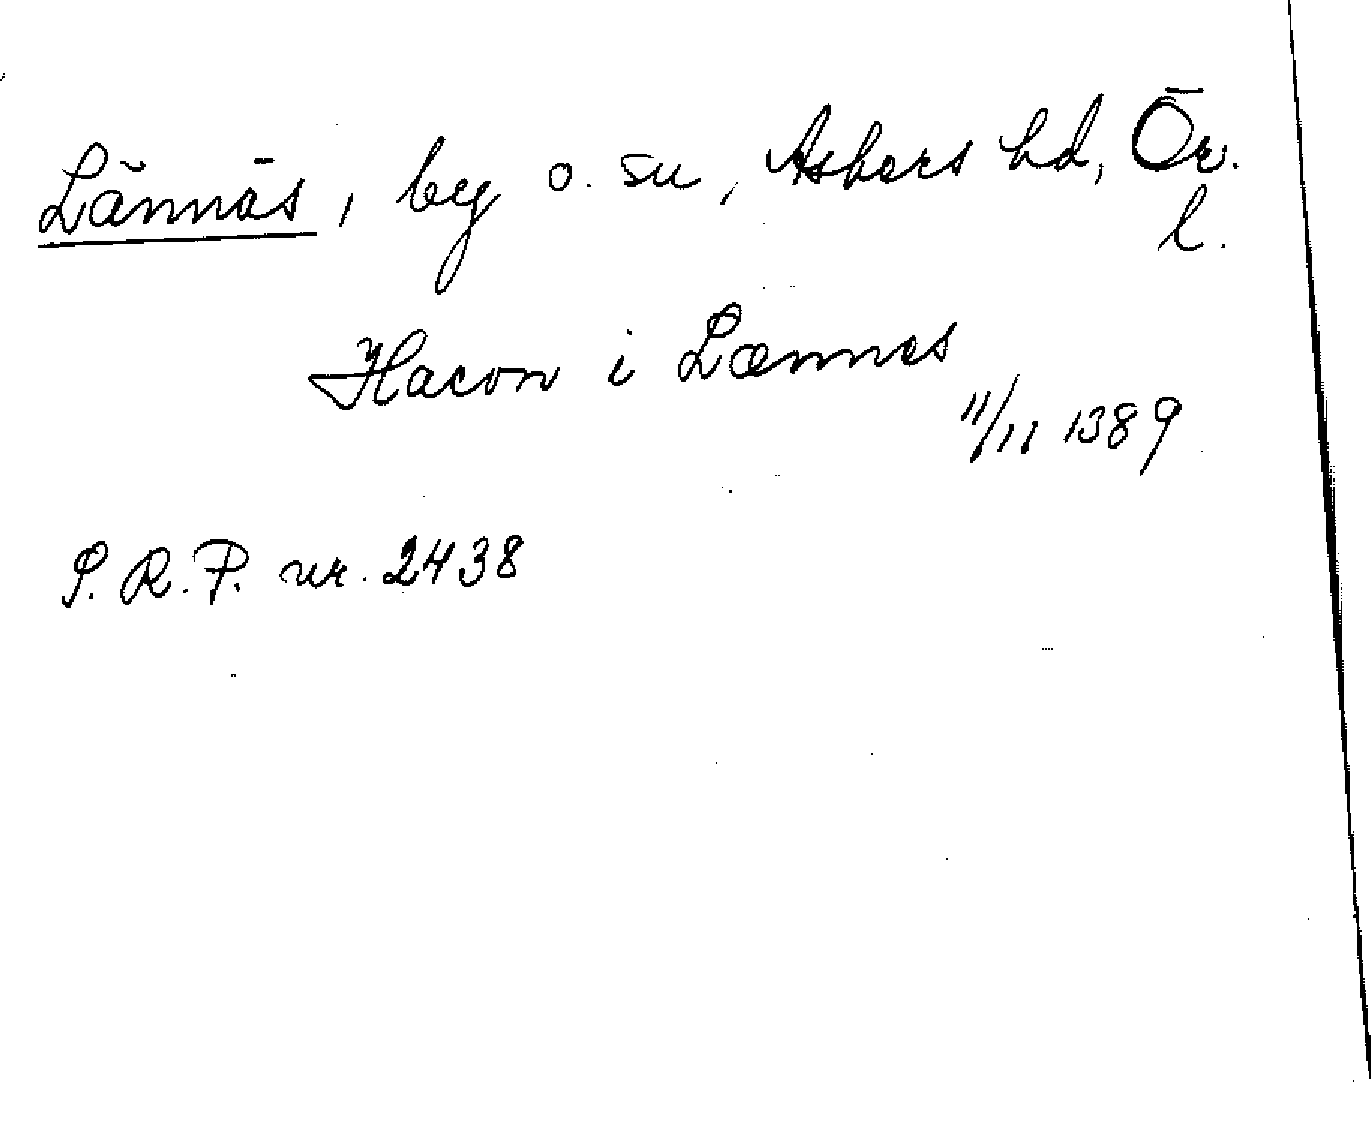 Lännäs, by o. sn, Askers hd, Ör.
l.
Hacon i Lænnes
11/11 1389
S.R.P. nr. 2438